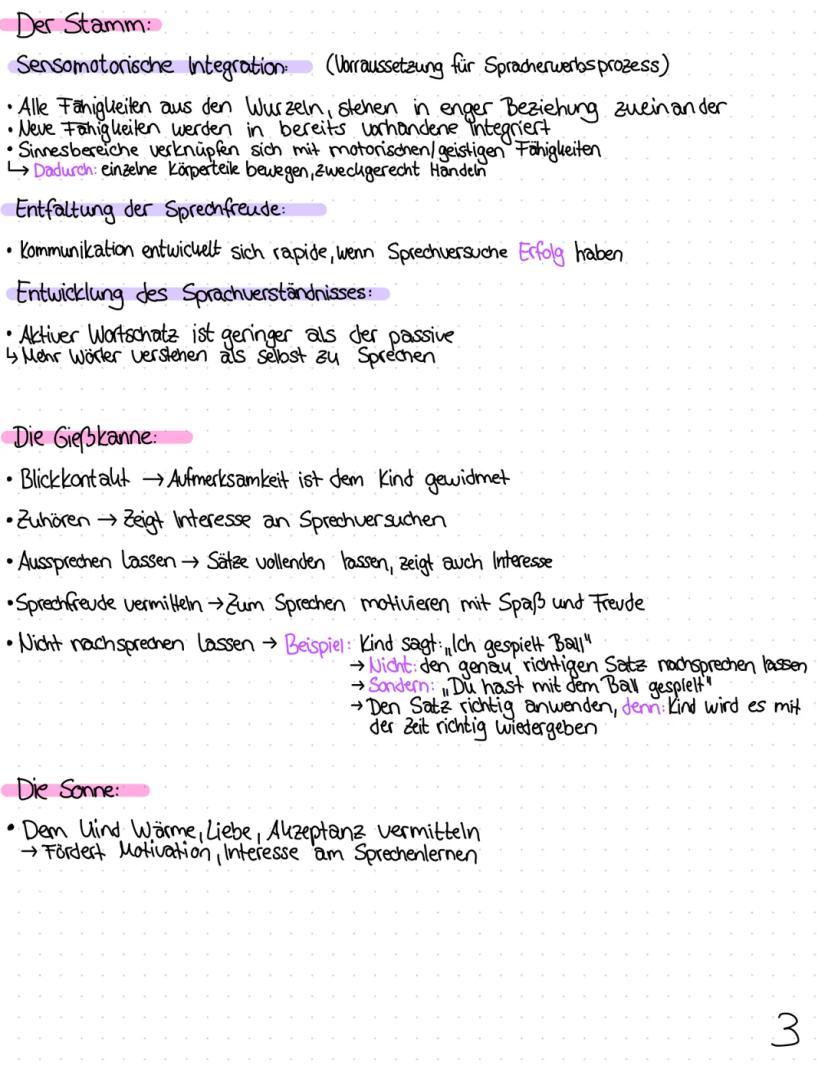 Der Stamm:
Sensomotorische Integration: (Vorraussetzung für Spracherwerbsprozess)
• Alle Fähigkeiten aus den Wurzeln, stehen in enger Beziehung zueinander
• Neue Fähigkeiten werden in bereits vorhandene integriert
• Sinnesbereiche verknüpfen sich mit motorischen/geistigen Fähigkeiten
↳ Dadurch: einzelne Körperteile bewegen, zweckgerecht Handeln
Entfaltung der Sprechfreude:
• Kommunikation entwickelt sich rapide, wenn Sprechversuche Erfolg haben
Entwicklung des Sprachverständnisses:
• Aktiver Wortschatz ist geringer als der passive
↳ Mehr Wörter verstehen als selbst zu Sprechen
Die Gießkanne:
• Blickkontakt → Aufmerksamkeit ist dem Kind gewidmet
• Zuhören → Zeigt Interesse an Sprechversuchen
• Aussprechen lassen → Sätze vollenden lassen, zeigt auch Interesse
• Sprechfreude vermitteln → Zum Sprechen motivieren mit Spaß und Freude
• Nicht nachsprechen lassen → Beispiel: Kind sagt: „Ich gespielt Ball"
→ Nicht: den genau richtigen Satz nachsprechen lassen
→ Sondern: „Du hast mit dem Ball gespielt"
→ Den Satz richtig anwenden, denn: Kind wird es mit
der Zeit richtig wiedergeben
Die Sonne:
• Dem Kind Wärme, Liebe, Akzeptanz vermitteln
→ Fördert Motivation, Interesse am Sprechenlernen
3